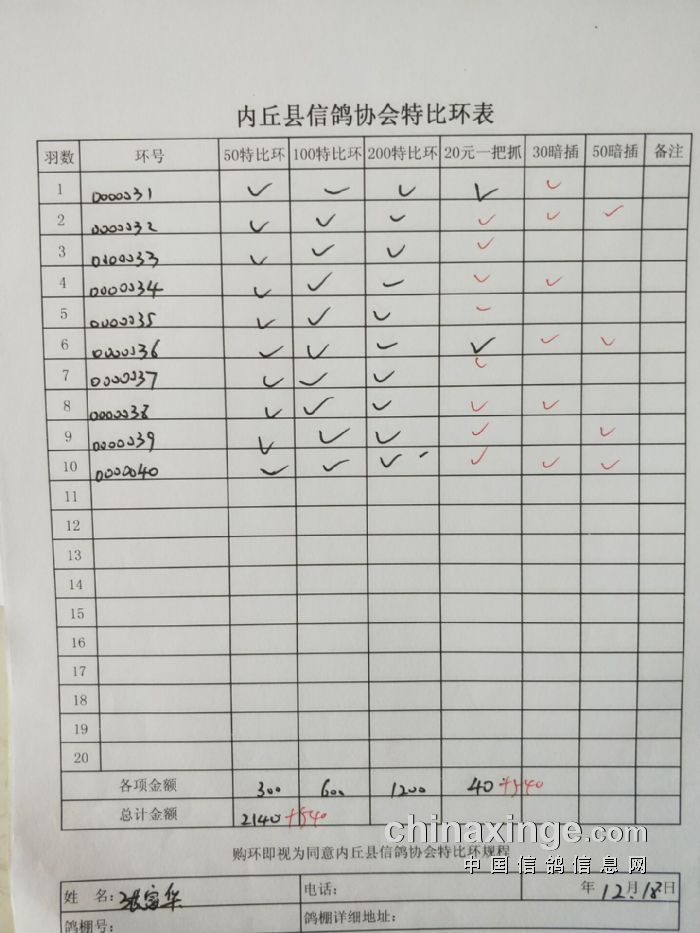 内丘县信鸽协会特比环表
羽数 环号 50特比环 100特比环 200特比环 20元一把抓 30暗插 50暗插 备注
1 0000031 ✓ ✓ ✓ ✓ ✓
2 0000032 ✓ ✓ ✓ ✓ ✓ ✓
3 0000033 ✓ ✓ ✓ ✓
4 0000034 ✓ ✓ ✓ ✓ ✓
5 0000035 ✓ ✓ ✓ ✓
6 0000036 ✓ ✓ ✓ ✓ ✓ ✓
7 0000037 ✓ ✓ ✓ ✓
8 0000038 ✓ ✓ ✓ ✓ ✓
9 0000039 ✓ ✓ ✓ ✓ ✓
10 0000040 ✓ ✓ ✓ ✓ ✓ ✓
11
12
13
14
15
16
17
18
19
20
各项金额 300 600 1200 40+540
总计金额 2140+540
购环即视为同意内丘县信鸽协会特比环规程
chinaxinge.com
中国信鸽信息网
姓 名:张富华 电话: 年12月18日
鸽棚号: 鸽棚详细地址: